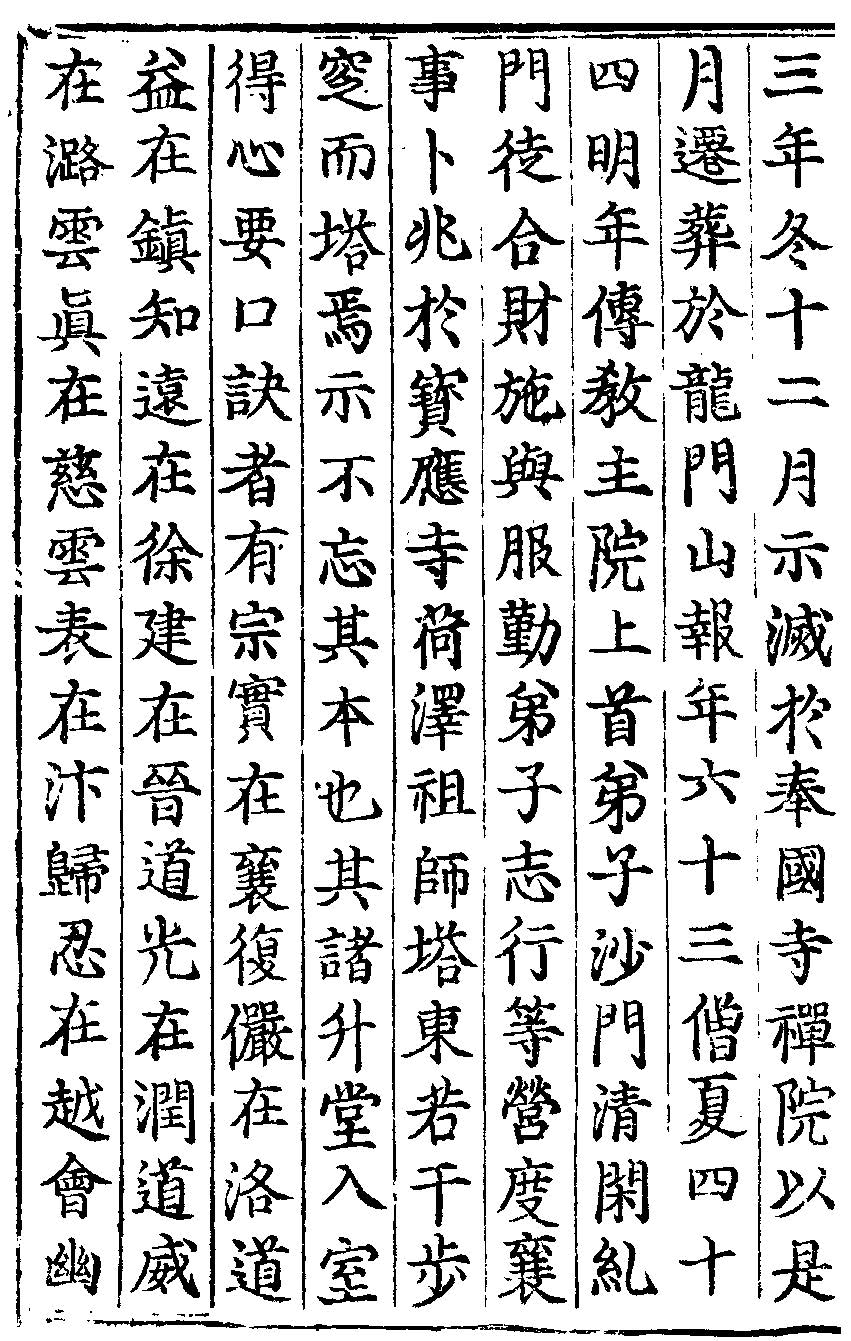 三年冬十二月示滅於奉國寺禪院以是
月遷葬於龍門山報年六十三僧夏四十
四明年傳教主院上首弟子沙門清閑糺
門徒合財施與服勤弟子志行等營度襄
事卜兆於寶應寺荷澤祖師塔東若干步
窆而塔焉示不忘其本也其諸升堂入室
得心要口訣者有宗實在襄復儼在洛道
益在鎮知遠在徐建在晉道光在潤道威
在潞雲真在慈雲表在汴歸忍在越會幽